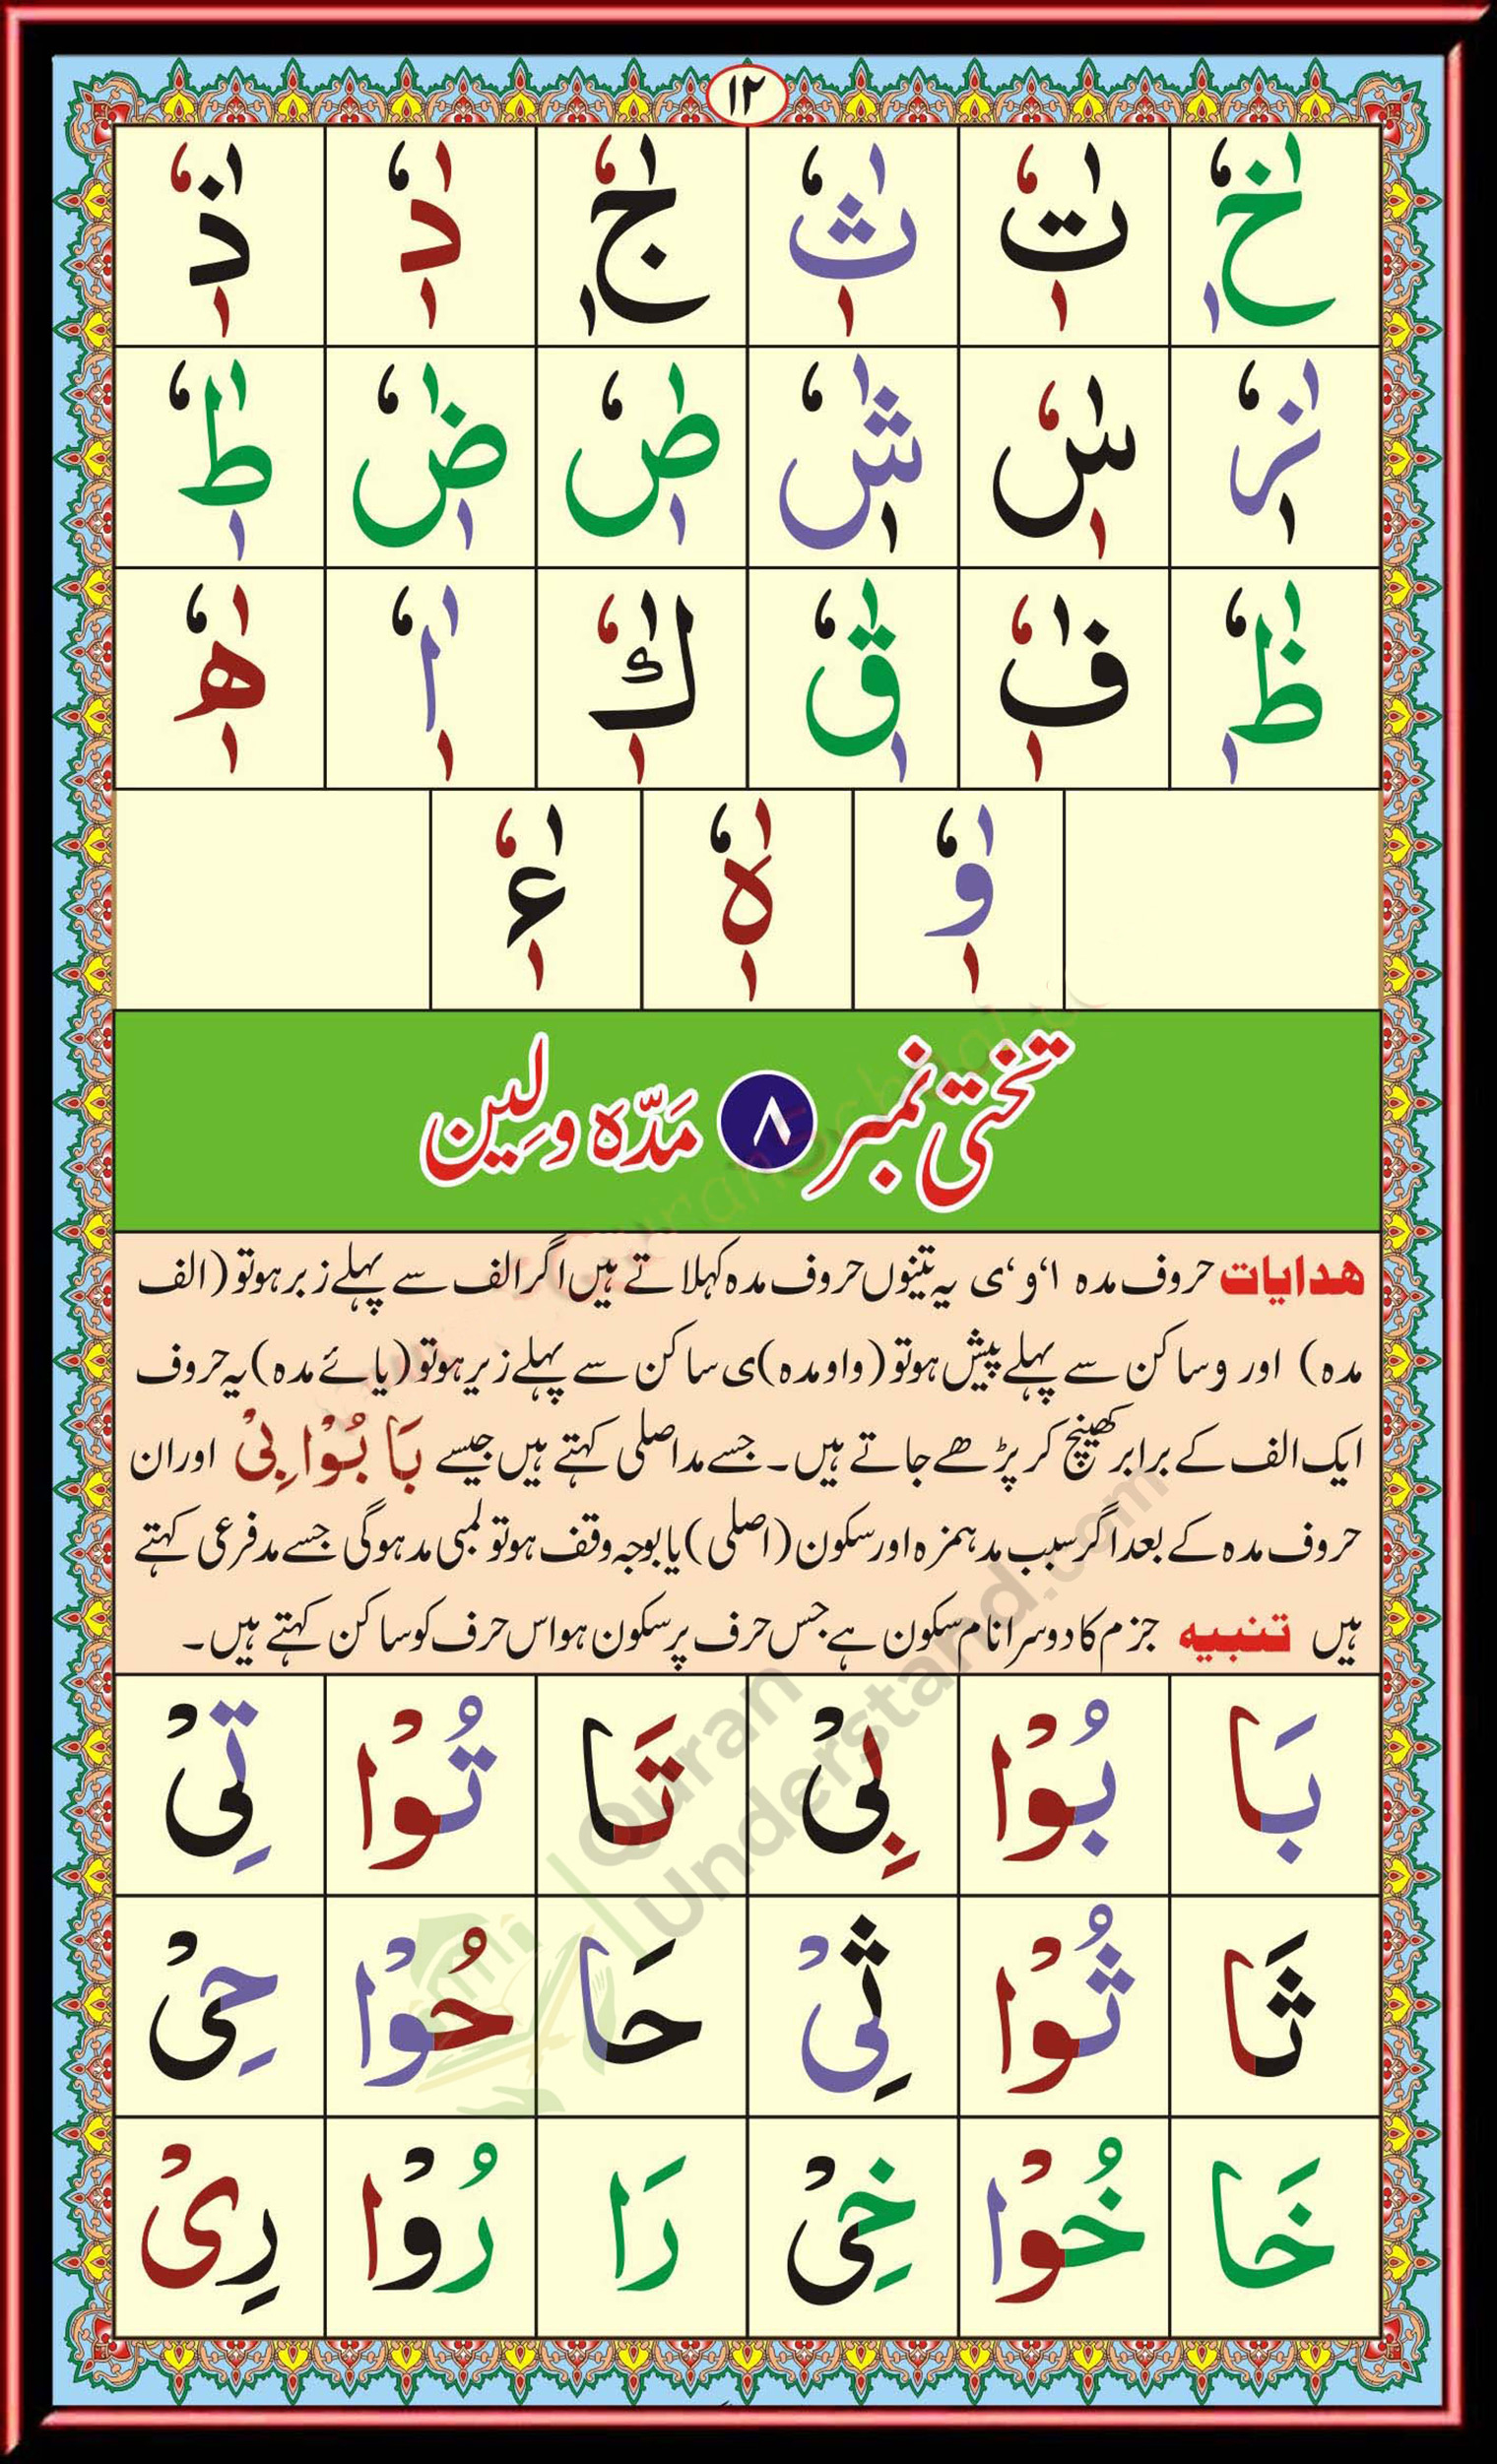 ۱۲
خٰ خٖ خٗ تٰ تٖ تٗ ثٰ ثٖ ثٗ جٰ جٖ جٗ دٰ دٖ دٗ ذٰ ذٖ ذٗ
زٰ زٖ زٗ سٰ سٖ سٗ شٰ شٖ شٗ صٰ صٖ صٗ ضٰ ضٖ ضٗ طٰ طٖ طٗ
ظٰ ظٖ ظٗ فٰ فٖ فٗ قٰ قٖ قٗ كٰ كٖ كٗ اٰ اٖ اٗ ھٰ ھٖ ھٗ
وٰ وٖ وٗ هٰ هٖ هٗ ءٰ ءٖ ءٗ
تختی نمبر ۸ مَدّہ و لِین
ھدایات حروف مدہ ا‘و‘ی یہ تینوں حروف مدہ کہلاتے ہیں اگر الف سے پہلے زبر ہو تو (الف
مدہ) اور و ساکن سے پہلے پیش ہو تو (واو مدہ) ی ساکن سے پہلے زیر ہو تو (یائے مدہ) یہ حروف
ایک الف کے برابر کھینچ کر پڑھے جاتے ہیں۔ جسے مد اصلی کہتے ہیں جیسے بَا بُوْا بِیْ اور ان
حروف مدہ کے بعد اگر سبب مد ہمزہ اور سکون (اصلی) یا بوجہ وقف ہو تو لمبی مد ہوگی جسے مد فرعی کہتے
ہیں تنبیہ جزم کا دوسرا نام سکون ہے جس حرف پر سکون ہو اس حرف کو ساکن کہتے ہیں۔
بَا بُوْا بِیْ تَا تُوْا تِیْ
ثَا ثُوْا ثِیْ حَا حُوْا حِیْ
خَا خُوْا خِیْ رَا رُوْا رِیْ
Quran
Understand.com